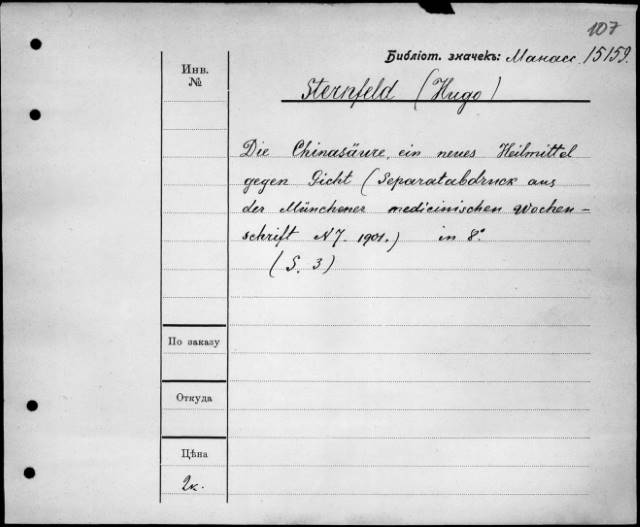 107
Библіот. значекъ: Манасс. 15159.
Инв.
№
Sternfeld (Hugo)
Die Chinasäure, ein neues Heilmittel
gegen Gicht (Separatabdruck aus
der Münchener medicinischen Wochen-
schrift N7. 1901.) in 8.°
(S. 3)
По заказу
Откуда
Цѣна
2к.